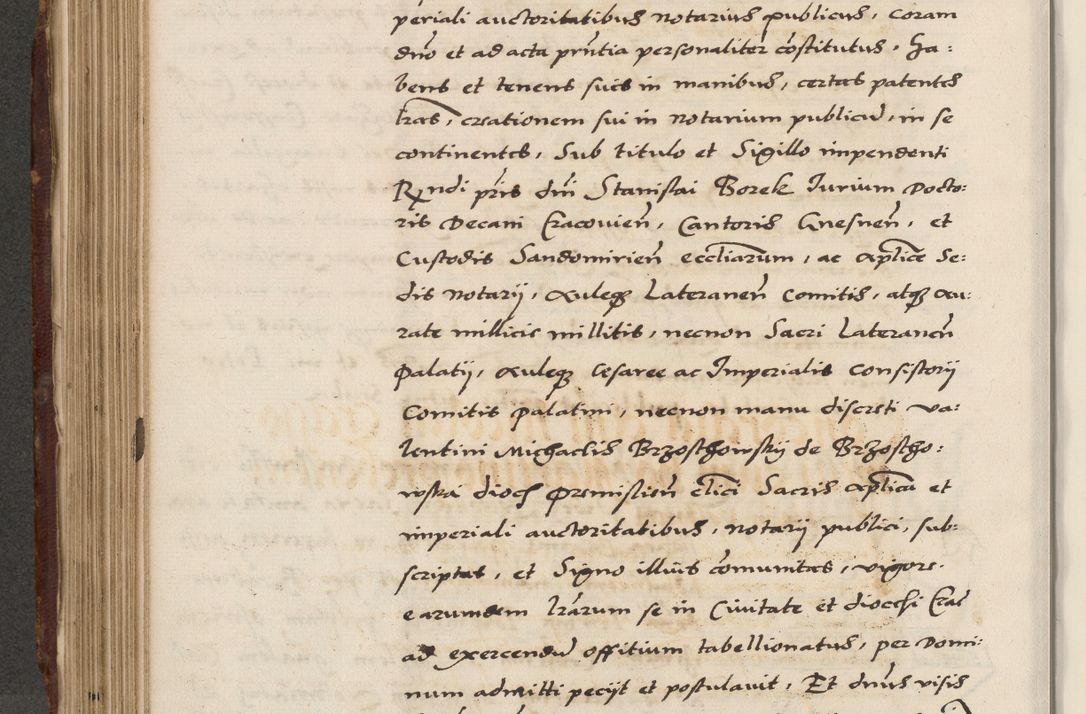 periali auctoritatibus notarius publicus, coram
dno et ad acta pñtia personaliter cõstitutus, Ha:
bens et tenens suis in manibus, certas patentes
lras, creationem sui in notarium publicũ, in se
continentes, Sub titulo et Sigillo impendenti
Rndi pris dni Stanislai Borek Iurium Docto:
ris Decani Cracovieñ, Cantoris Gnesneñ, et
Custodis Sandomirieñ eccliarum, ac aplice Se:
dis notarij, Auleqz Lateraneñ Comitis, atqz Au:
rate millicie militis, necnon Sacri Lateraneñ
Palatij, Auleqz Cesaree ac Imperialis Consistorij
Comitis palatini, necnon manu discreti Va:
lentini Michaelis Brzosthowskij de Brzostho:
wska dioces Premislieñ clici Sacris aplica et
imperiali auctoritatibus, notarij publici, sub:
scriptas, et Signo illius cõmunitas, vigore
earumdem lrarum se in Civitate et diocesi Crac
ad exercendũ offitium tabellionatus, per Domi:
num admitti pecijt et postulavit, Et dnus visis